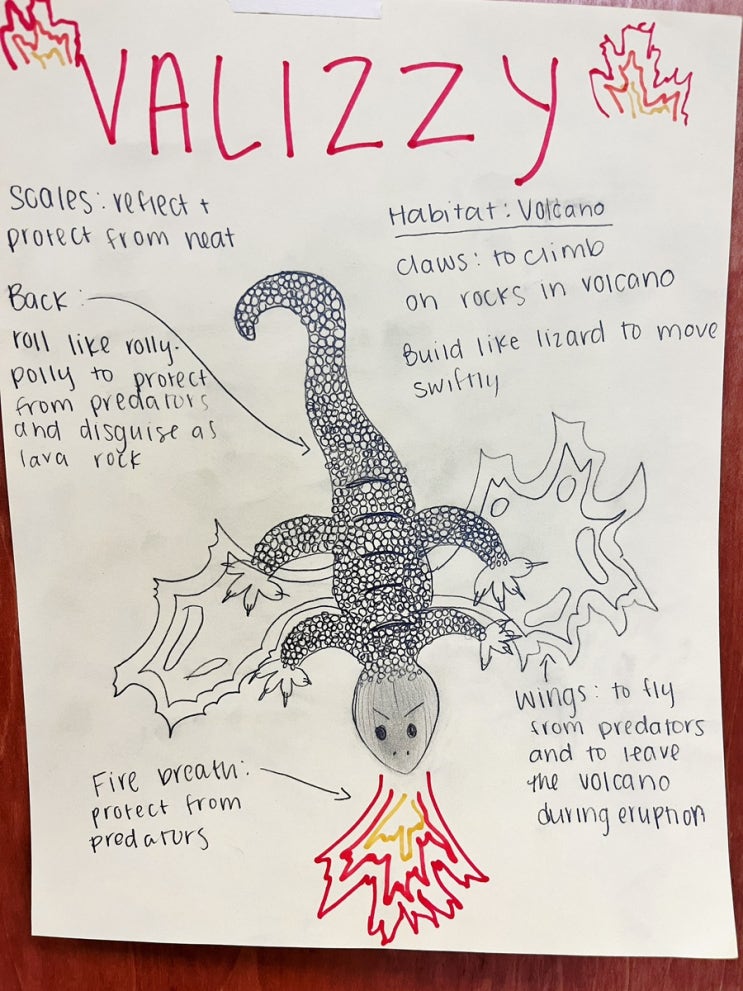 VALIZZY
Scales: reflect +
protect from heat
Back:
roll like rolly-
polly to protect
from predators
and disguise as
lava rock
Habitat: Volcano
Claws: to climb
on rocks in volcano
Build like lizard to move
swiftly
Wings: to fly
from predators
and to leave
the volcano
during eruption
Fire breath:
protect from
predators